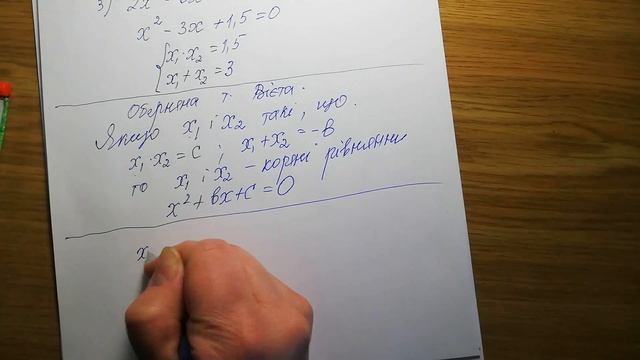 3) 2x²
x² - 3x + 1,5 = 0
{x₁·x₂ = 1,5
x₁ + x₂ = 3
Обернена т. Вієта.
Якщо x₁ і x₂ такі, що
x₁·x₂ = c ; x₁ + x₂ = -в
то x₁ і x₂ - корені рівняння
x² + вx + c = 0
x